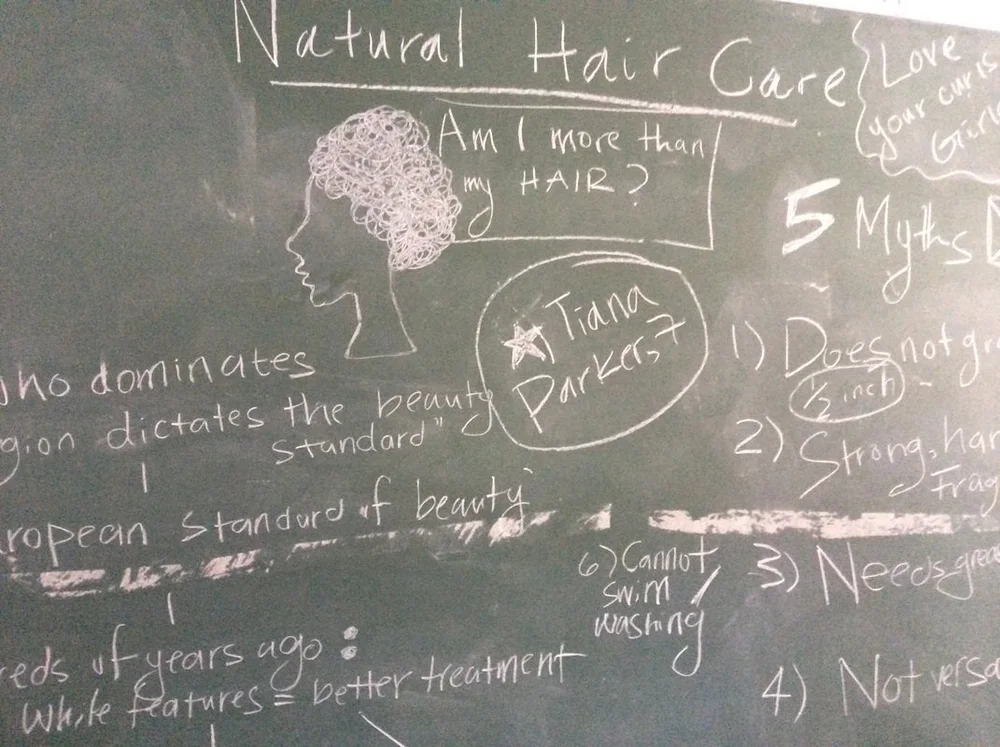 Natural Hair Care
Love
your curls
Girl
Am I more than
my HAIR?
5 Myths
Tiana
Parker, 7
who dominates
gion dictates the beauty
standard"
ropean standard of beauty
reds of years ago:
White features = better treatment
1) Does not gro
1/2 inch
2) Strong, har
Frag
3) Needs grea
4) Not versa
6) Cannot
swim /
washing